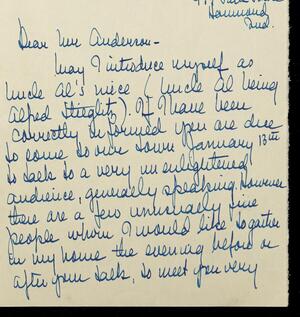 Hammond,
Ind.
Dear Mr Anderson-
May I introduce myself as
Uncle Al's niece (Uncle Al being
Alfred Stieglitz). If I have been
correctly informed you are due
to come to our town January 13th
to talk to a very un enlightened
audience, generally speaking. However
there are a few unusually fine
people whom I would like to gather
in my home the evening before or
after your talk, to meet you very